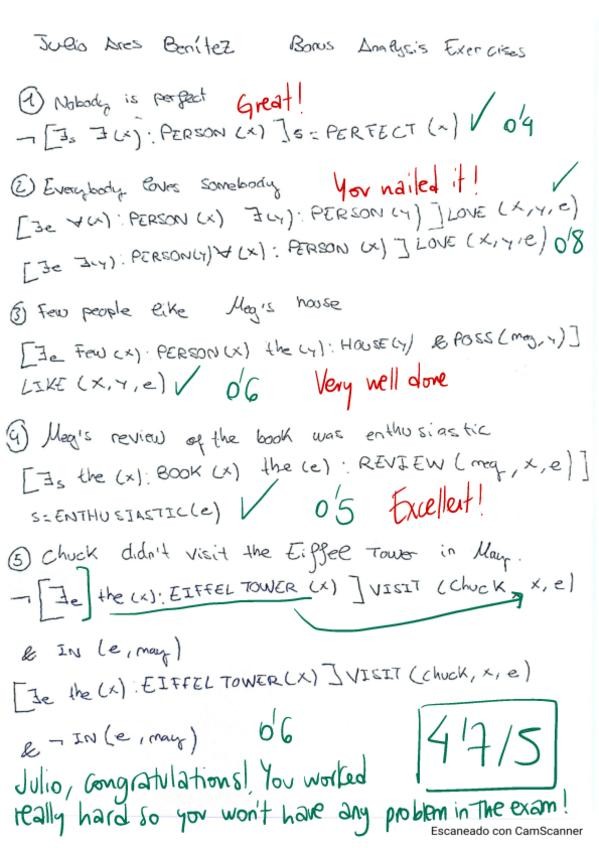 Julio Ares Benítez Bonus Analysis Exercises
① Nobody is perfect Great!
¬ [∃s ∃(x): PERSON (x) ] s = PERFECT (x) ✓ 0'4
② Everybody loves somebody You nailed it! ✓
[∃e ∀(x): PERSON (x) ∃(y): PERSON (y) ] LOVE (x,y,e)
[∃e ∃(y): PERSON(y) ∀(x): PERSON (x) ] LOVE (x,y,e) 0'8
③ Few people like Meg's house
[∃e Few (x): PERSON(x) the (y): HOUSE(y) & POSS(meg, y)]
LIKE (x,y,e) ✓ 0'6 Very well done
④ Meg's review of the book was enthusiastic
[∃s the (x): BOOK (x) the (e): REVIEW (meg, x, e)]
s = ENTHUSIASTIC(e) ✓ 0'5 Excellent!
⑤ Chuck didn't visit the Eiffee Tower in May.
¬ [∃e] the (x): EIFFEL TOWER (x) ] VISIT (chuck, x, e)
& IN (e, may)
[∃e the (x): EIFFEL TOWER (X) ] VISIT (chuck, x, e)
& ¬ IN (e, may) 0'6 4'7/5
Julio, congratulations! You worked
really hard so you won't have any problem in the exam!
Escaneado con CamScanner